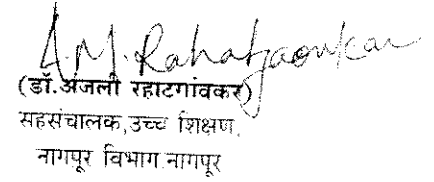 A.M. Rahatgaonkar
(डॉ.अंजली रहाटगांवकर)
सहसंचालक,उच्च शिक्षण,
नागपूर विभाग नागपूर